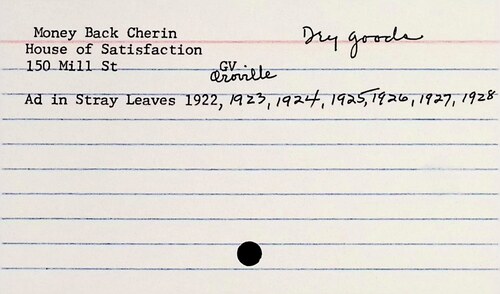 Money Back Cherin Dry goods
House of Satisfaction
150 Mill St GV
Oroville
Ad in Stray Leaves 1922, 1923, 1924, 1925, 1926, 1927, 1928